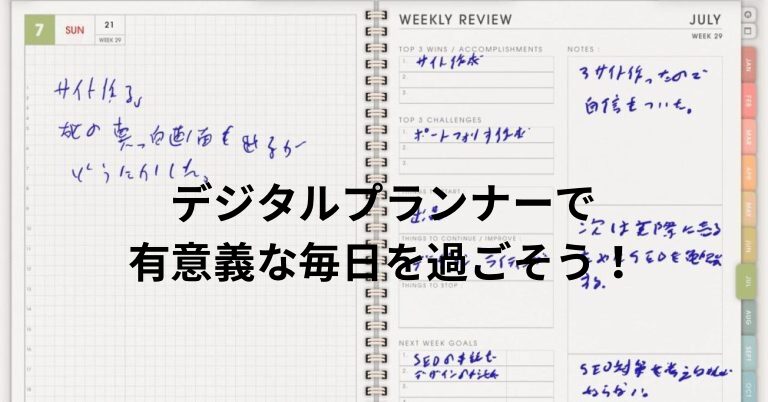 7
SUN
21
WEEK 29
サイト作る。
真っ白画面も出るが
どうにかした。
WEEKLY REVIEW
JULY
WEEK 29
TOP 3 WINS / ACCOMPLISHMENTS
1. サイト作成
2.
3.
TOP 3 CHALLENGES
1. ポートフォリオ作成
2.
3.
THINGS TO CONTINUE / IMPROVE :
THINGS TO STOP :
NEXT WEEK GOALS
1.
2.
3.
NOTES :
3サイト作ったので
自信もついた。
次は実際に売る
ためにSEOを勉強
する。
SEO対策を考え
ならない。
デジタルプランナーで
有意義な毎日を過ごそう！
JAN
FEB
MAR
APR
MAY
JUN
JUL
AUG
SEPT
OCT